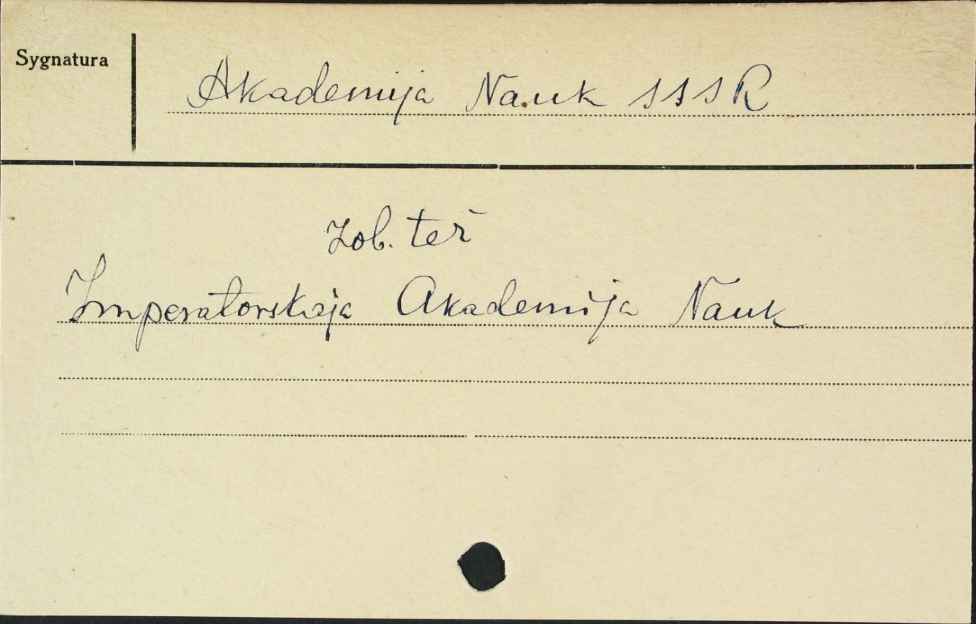 Sygnatura
Akademija Nauk SSSR
Zob. też
Imperatorskaja Akademija Nauk